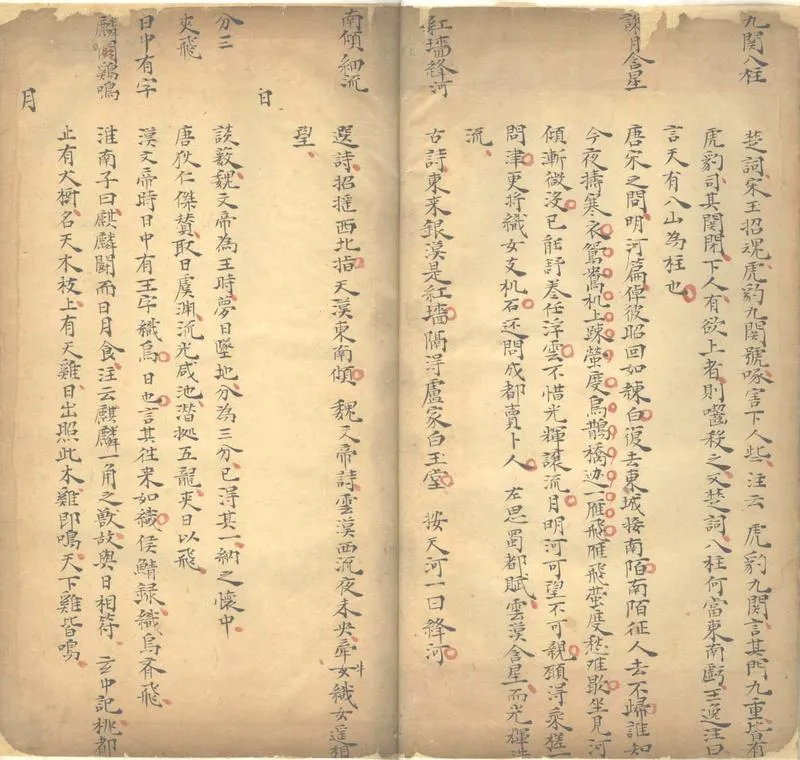 九関八柱
楚詞宋玉招魂虎豹九関號啄害下人些汪云虎豹九関言其門九重皆有
虎豹司其関閉下人有欲上者則囓殺之又楚詞八柱何當東南虧王逸汪曰
言天有八山為柱也
誤月含星
唐宋之問明河篇倬彼昭回如練白復去東城接南陌南陌征人去不歸誰知
今夜擣寒衣鴛鴦机上踈螢度烏鵲橋边一雁飛雁飛螢度愁难歇坐見河
傾漸微沒已能舒卷任浮雲不惜光輝讓流月明河可望不可親願得乘槎一
問津更将織女支机石还問成都賣卜人 左思蜀都賦雲漢含星而光輝洪
流
紅墻絳河
古詩東来銀漢是紅墻隔得盧家白玉堂 按天河一曰絳河
南傾細流
選詩招摇西北指天漢東南傾 魏文帝詩雲漢西流夜未央牽牛織女遥相
望
日
分三
談薮魏文帝為王時夢日墜地分為三分已得其一納之懷中
夾飛
唐狄仁傑賛取日虞渊流光咸池潜拠五龍夾日以飛
日中有字
漢文帝時日中有王字織烏日也言其往来如織侯鯖録織烏斉飛
麟鬭鷄鳴
淮南子曰麒麟鬭而日月食注云麒麟一角之獸故與日相符 玄中記桃都
止有大樹名天木枝上有天雞日出照此木雞即鳴天下雞皆鳴
月